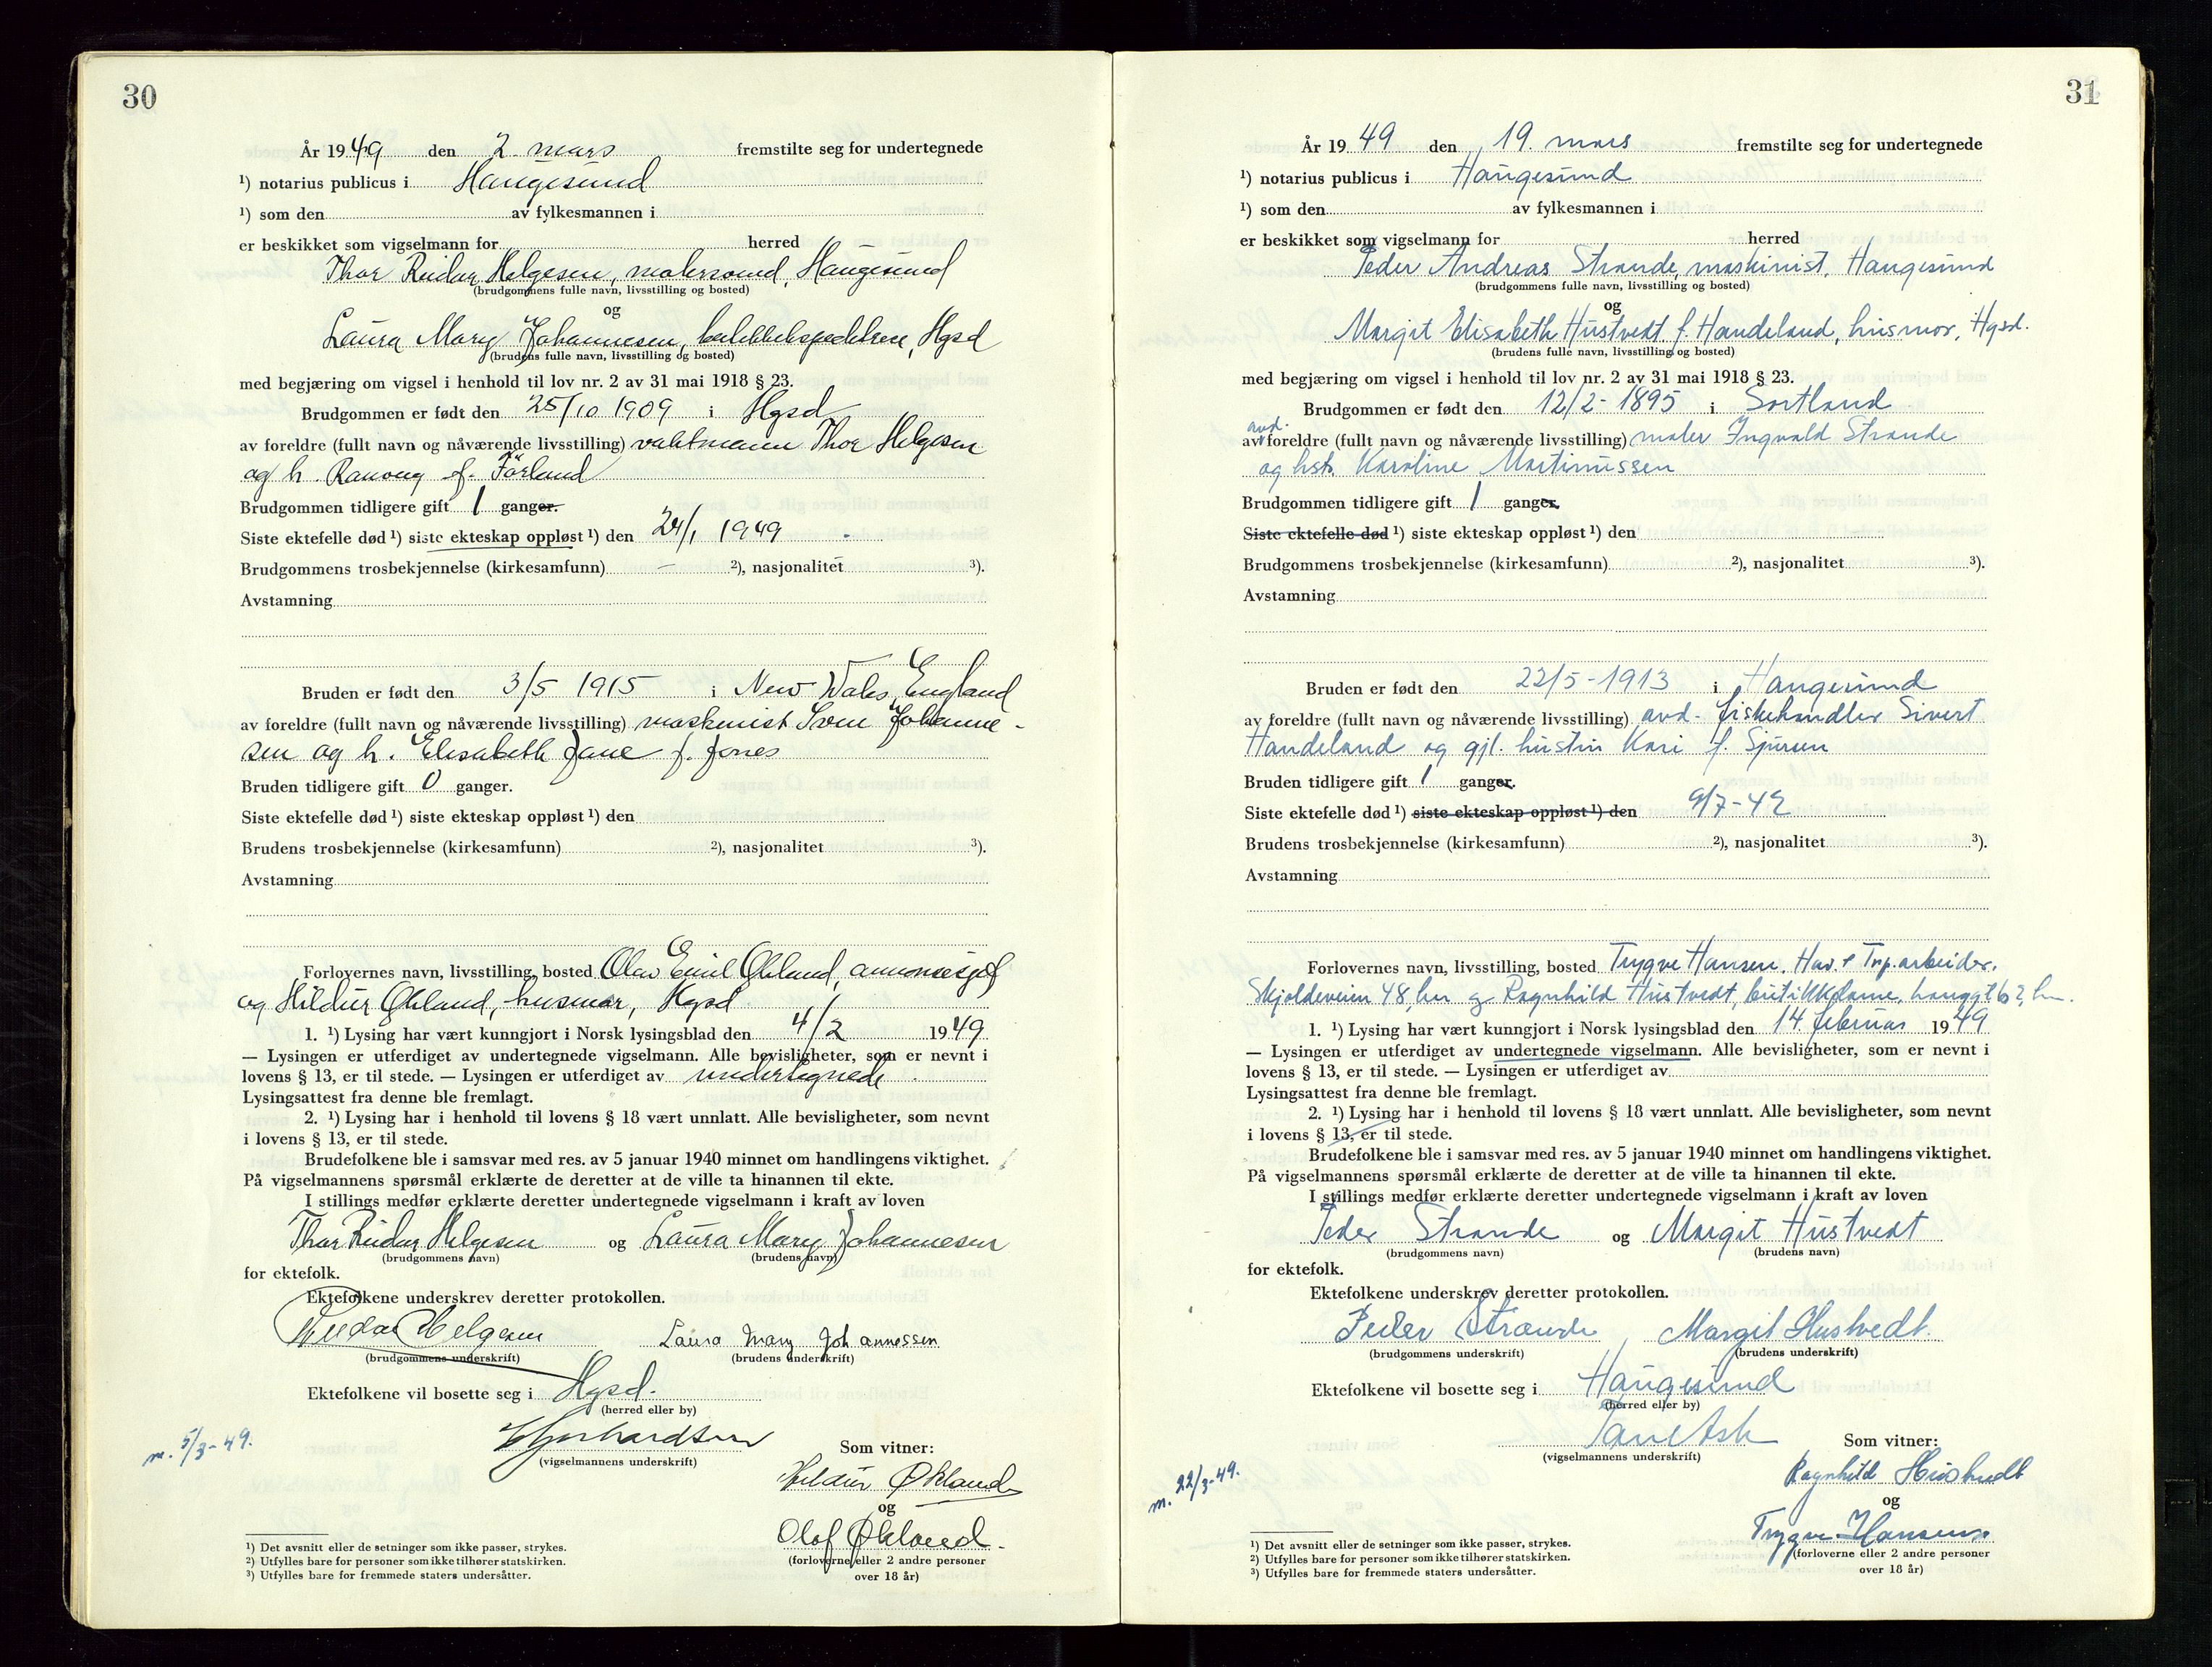 30
År 1949 den 2. mars fremstilte seg for undertegnede
¹) notarius publicus i Haugesund
¹) som den av fylkesmannen i
er beskikket som vigselmann for herred
Thor Reidar Helgesen, malersvend, Haugesund
(brudgommens fulle navn, livsstilling og bosted)
og
Laura Mary Johannesen, Hgsd
(brudens fulle navn, livsstilling og bosted)
med begjæring om vigsel i henhold til lov nr. 2 av 31 mai 1918 § 23.
Brudgommen er født den 25/10 1909 i Hgsd
av foreldre (fullt navn og nåværende livsstilling) vaktmann Thor Helgesen
og h. Ranveig f. Førland
Brudgommen tidligere gift 1 ganger.
Siste ektefelle død ¹) siste ekteskap oppløst ¹) den 24/1 1949
Brudgommens trosbekjennelse (kirkesamfunn) — ²), nasjonalitet ³).
Avstamning
Bruden er født den 3/5 1915 i New Wales, England
av foreldre (fullt navn og nåværende livsstilling) maskinist Sven Johanne-
sen og h. Elisabeth Jane f. Jones
Bruden tidligere gift 0 ganger.
Siste ektefelle død ¹) siste ekteskap oppløst ¹) den
Brudens trosbekjennelse (kirkesamfunn) ²), nasjonalitet ³).
Avstamning
Forlovernes navn, livsstilling, bosted Olav Emil Økland, annonsesjef
og Hildur Økland, husmor, Hgsd
1. ¹) Lysing har vært kunngjort i Norsk lysingsblad den 4/2 1949
— Lysingen er utferdiget av undertegnede vigselmann. Alle bevisligheter, som er nevnt i
lovens § 13, er til stede. — Lysingen er utferdiget av undertegnede.
Lysingsattest fra denne ble fremlagt.
2. ¹) Lysing har i henhold til lovens § 18 vært unnlatt. Alle bevisligheter, som nevnt
i lovens § 13, er til stede.
Brudefolkene ble i samsvar med res. av 5 januar 1940 minnet om handlingens viktighet.
På vigselmannens spørsmål erklærte de deretter at de ville ta hinannen til ekte.
I stillings medfør erklærte deretter undertegnede vigselmann i kraft av loven
Thor Reidar Helgesen og Laura Mary Johannesen
(brudgommens navn) (brudens navn)
for ektefolk.
Ektefolkene underskrev deretter protokollen.
Reidar Helgesen Laura Mary Johannessen
(brudgommens underskrift) (brudens underskrift)
Ektefolkene vil bosette seg i Hgsd.
(herred eller by)
m. 5/3-49.
(vigselmannens underskrift) Som vitner:
Hildur Økland
og
Olaf Økland.
(forloverne eller 2 andre personer
over 18 år)
¹) Det avsnitt eller de setninger som ikke passer, strykes.
²) Utfylles bare for personer som ikke tilhører statskirken.
³) Utfylles bare for fremmede staters undersåtter.
31
År 1949 den 19. mars fremstilte seg for undertegnede
¹) notarius publicus i Haugesund
¹) som den av fylkesmannen i
er beskikket som vigselmann for herred
Peder Andreas Strande, maskinist, Haugesund
(brudgommens fulle navn, livsstilling og bosted)
og
Margit Elisabeth Hustvedt f. Handeland, husmor, Hgsd.
(brudens fulle navn, livsstilling og bosted)
med begjæring om vigsel i henhold til lov nr. 2 av 31 mai 1918 § 23.
Brudgommen er født den 12/2-1895 i Sortland
avd.
av foreldre (fullt navn og nåværende livsstilling) maler Ingvald Strande
og hst. Karoline Martinussen
Brudgommen tidligere gift 1 ganger.
Siste ektefelle død ¹) siste ekteskap oppløst ¹) den
Brudgommens trosbekjennelse (kirkesamfunn) ²), nasjonalitet ³).
Avstamning
Bruden er født den 22/5-1913 i Haugesund
av foreldre (fullt navn og nåværende livsstilling) avd. fiskehandler Sivert
Handeland og gjl. hustru Kari f. Sjursen
Bruden tidligere gift 1 ganger.
Siste ektefelle død ¹) siste ekteskap oppløst ¹) den 9/7-42
Brudens trosbekjennelse (kirkesamfunn) ²), nasjonalitet ³).
Avstamning
Forlovernes navn, livsstilling, bosted Trygve Hansen, Hav. & Trp. arbeider.
Skjoldeveien 48, her og Ragnhild Hustvedt, butikkdame,
1. ¹) Lysing har vært kunngjort i Norsk lysingsblad den 14. februar 1949
— Lysingen er utferdiget av undertegnede vigselmann. Alle bevisligheter, som er nevnt i
lovens § 13, er til stede. — Lysingen er utferdiget av
Lysingsattest fra denne ble fremlagt.
2. ¹) Lysing har i henhold til lovens § 18 vært unnlatt. Alle bevisligheter, som nevnt
i lovens § 13, er til stede.
Brudefolkene ble i samsvar med res. av 5 januar 1940 minnet om handlingens viktighet.
På vigselmannens spørsmål erklærte de deretter at de ville ta hinannen til ekte.
I stillings medfør erklærte deretter undertegnede vigselmann i kraft av loven
Peder Strande og Margit Hustvedt
(brudgommens navn) (brudens navn)
for ektefolk.
Ektefolkene underskrev deretter protokollen.
Peder Strande, Margit Hustvedt.
(brudgommens underskrift) (brudens underskrift)
Ektefolkene vil bosette seg i Haugesund
(herred eller by)
m. 22/3-49.
(vigselmannens underskrift) Som vitner:
Ragnhild Hustvedt
og
Trygve Hansen.
(forloverne eller 2 andre personer
over 18 år)
¹) Det avsnitt eller de setninger som ikke passer, strykes.
²) Utfylles bare for personer som ikke tilhører statskirken.
³) Utfylles bare for fremmede staters undersåtter.